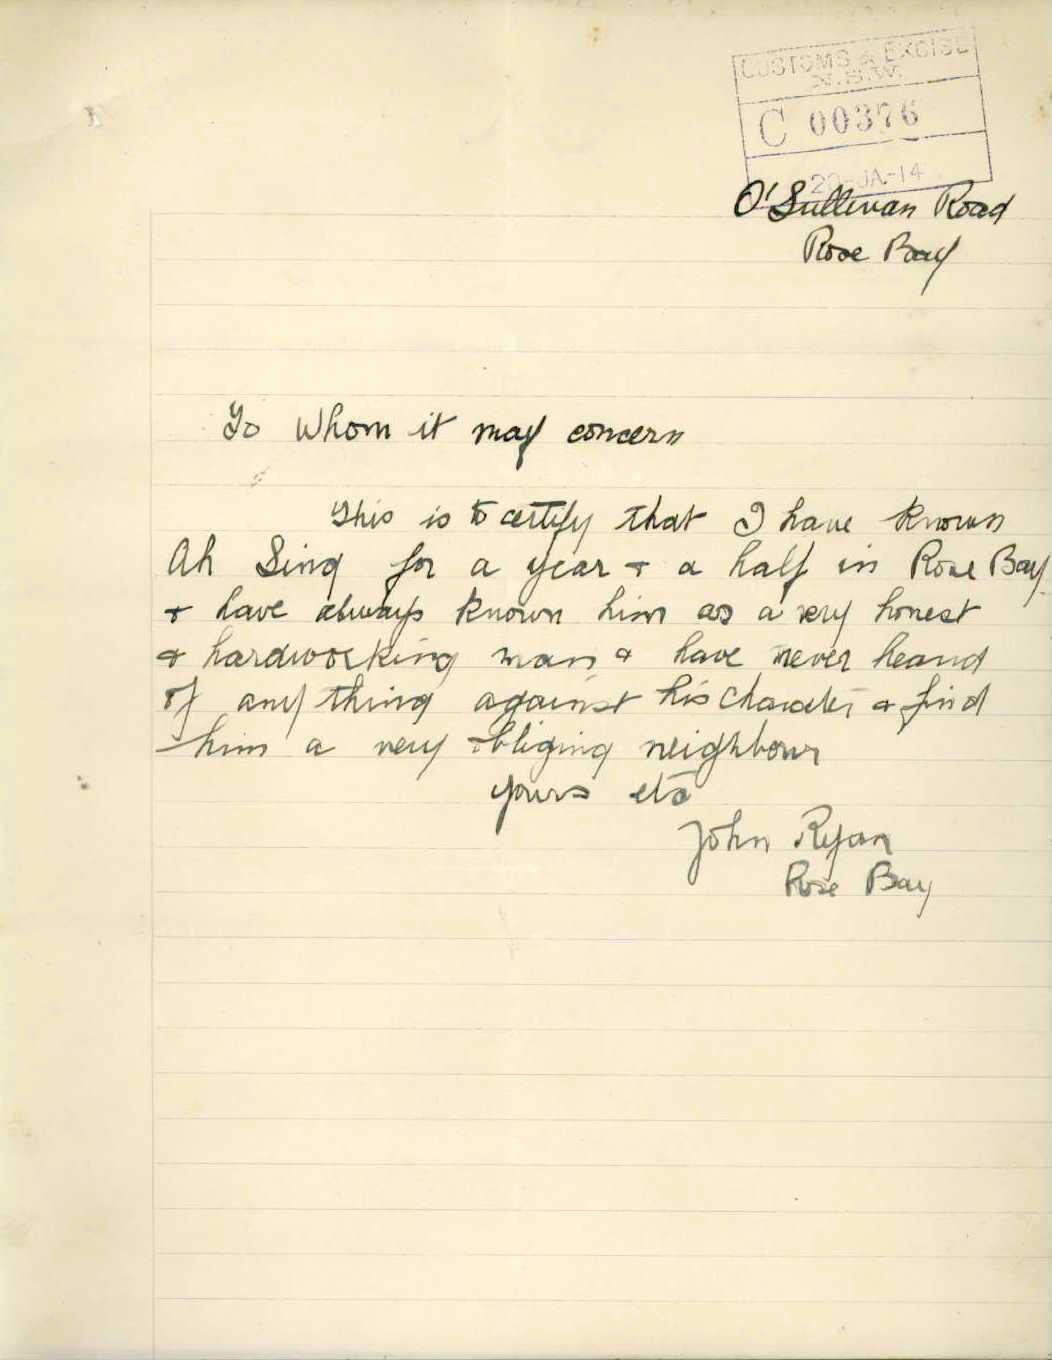 CUSTOMS & EXCISE
N.S.W.
C 00376
20-JA-14
O'Sullivan Road
Rose Bay
To Whom it may concern
This is to certify that I have known
Ah Sing for a year & a half in Rose Bay
& have always known him as a very honest
& hardworking man & have never heard
of any thing against his character & find
him a very obliging neighbour
yours etc
John Ryan
Rose Bay